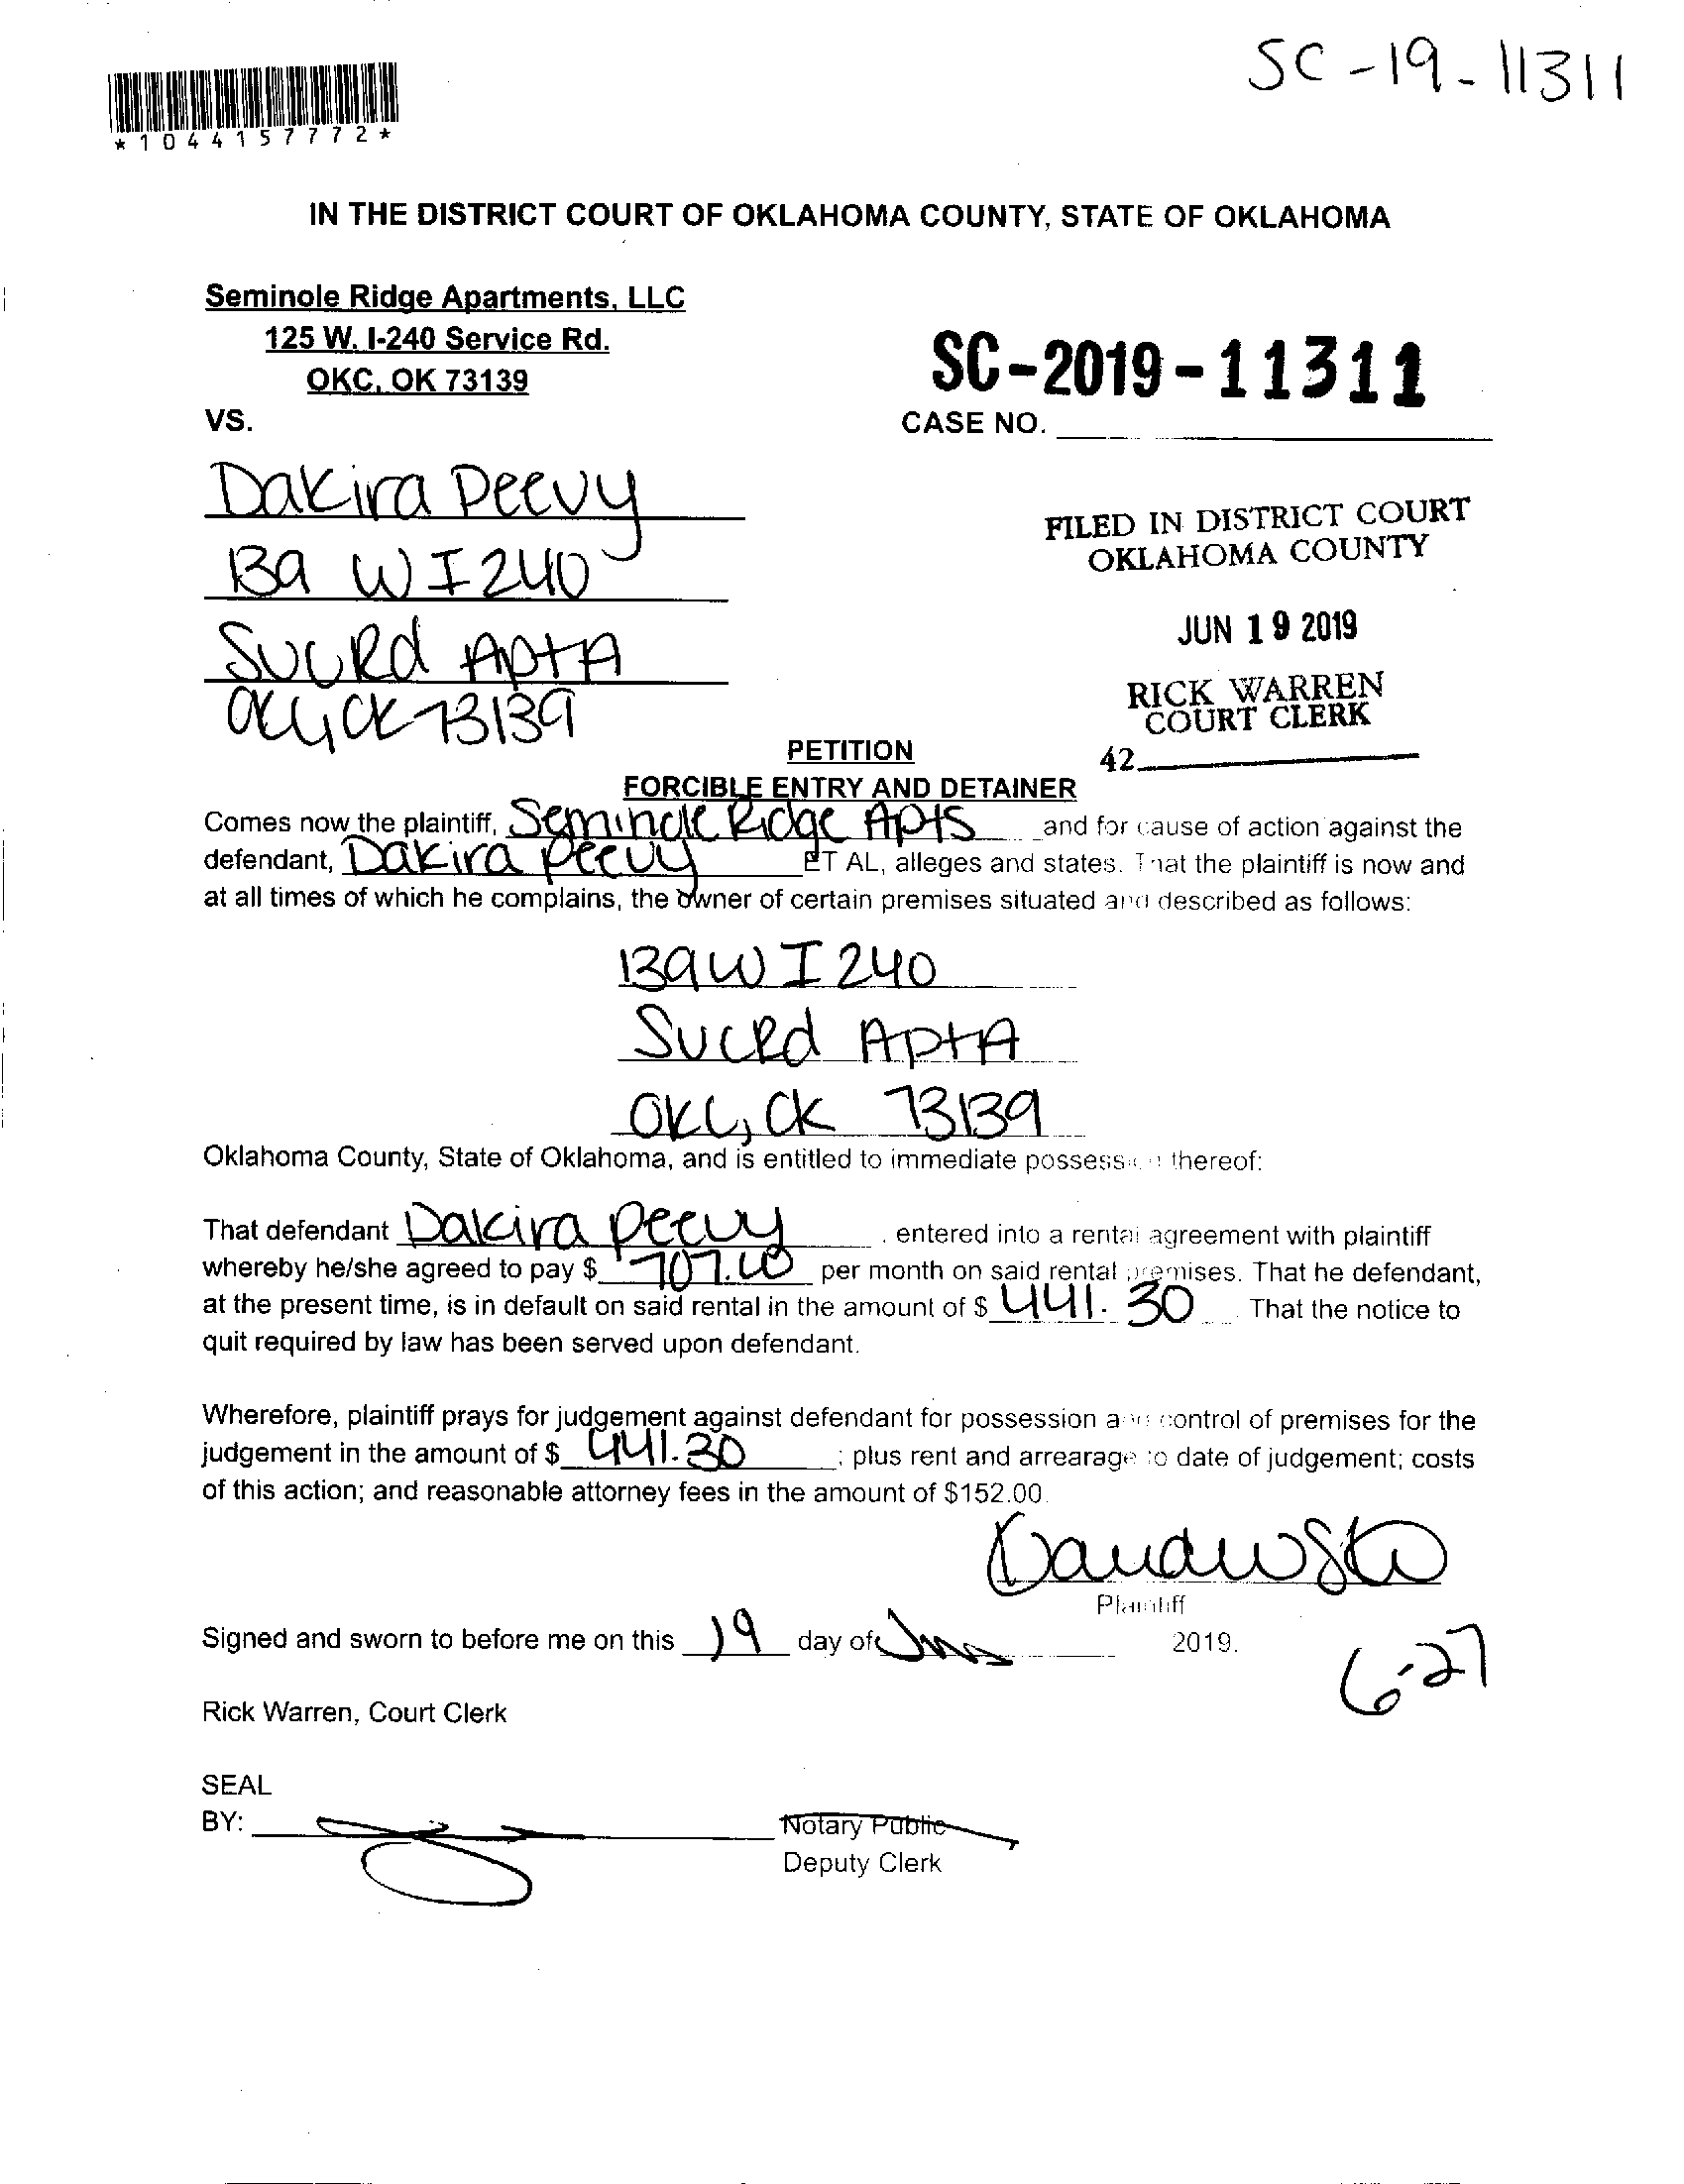 SC-19-11311
*1044157772*
IN THE DISTRICT COURT OF OKLAHOMA COUNTY, STATE OF OKLAHOMA
Seminole Ridge Apartments, LLC
125 W. I-240 Service Rd.
OKC, OK 73139
SC-2019-11311
VS.
CASE NO.
Dakira Peevy
139 W I 240
FILED IN DISTRICT COURT
OKLAHOMA COUNTY
JUN 19 2019
Svc Rd Apt A
OKC, OK 73139
RICK WARREN
COURT CLERK
42
PETITION
FORCIBLE ENTRY AND DETAINER
Comes now the plaintiff, Seminole Ridge Apts and for cause of action against the
defendant, Dakira Peevy ET AL, alleges and states. That the plaintiff is now and
at all times of which he complains, the owner of certain premises situated and described as follows:
139 W I 240
Svc Rd Apt A
OKC, OK 73139
Oklahoma County, State of Oklahoma, and is entitled to immediate possession thereof:
That defendant Dakira Peevy, entered into a rental agreement with plaintiff
whereby he/she agreed to pay $ per month on said rental premises. That he defendant,
at the present time, is in default on said rental in the amount of $ 441.30. That the notice to
quit required by law has been served upon defendant.
Wherefore, plaintiff prays for judgement against defendant for possession and control of premises for the
judgement in the amount of $ 441.30; plus rent and arrearage to date of judgement; costs
of this action; and reasonable attorney fees in the amount of $152.00.
Plaintiff
Signed and sworn to before me on this 19 day of June 2019.
6-27
Rick Warren, Court Clerk
SEAL
BY:
Notary Public
Deputy Clerk